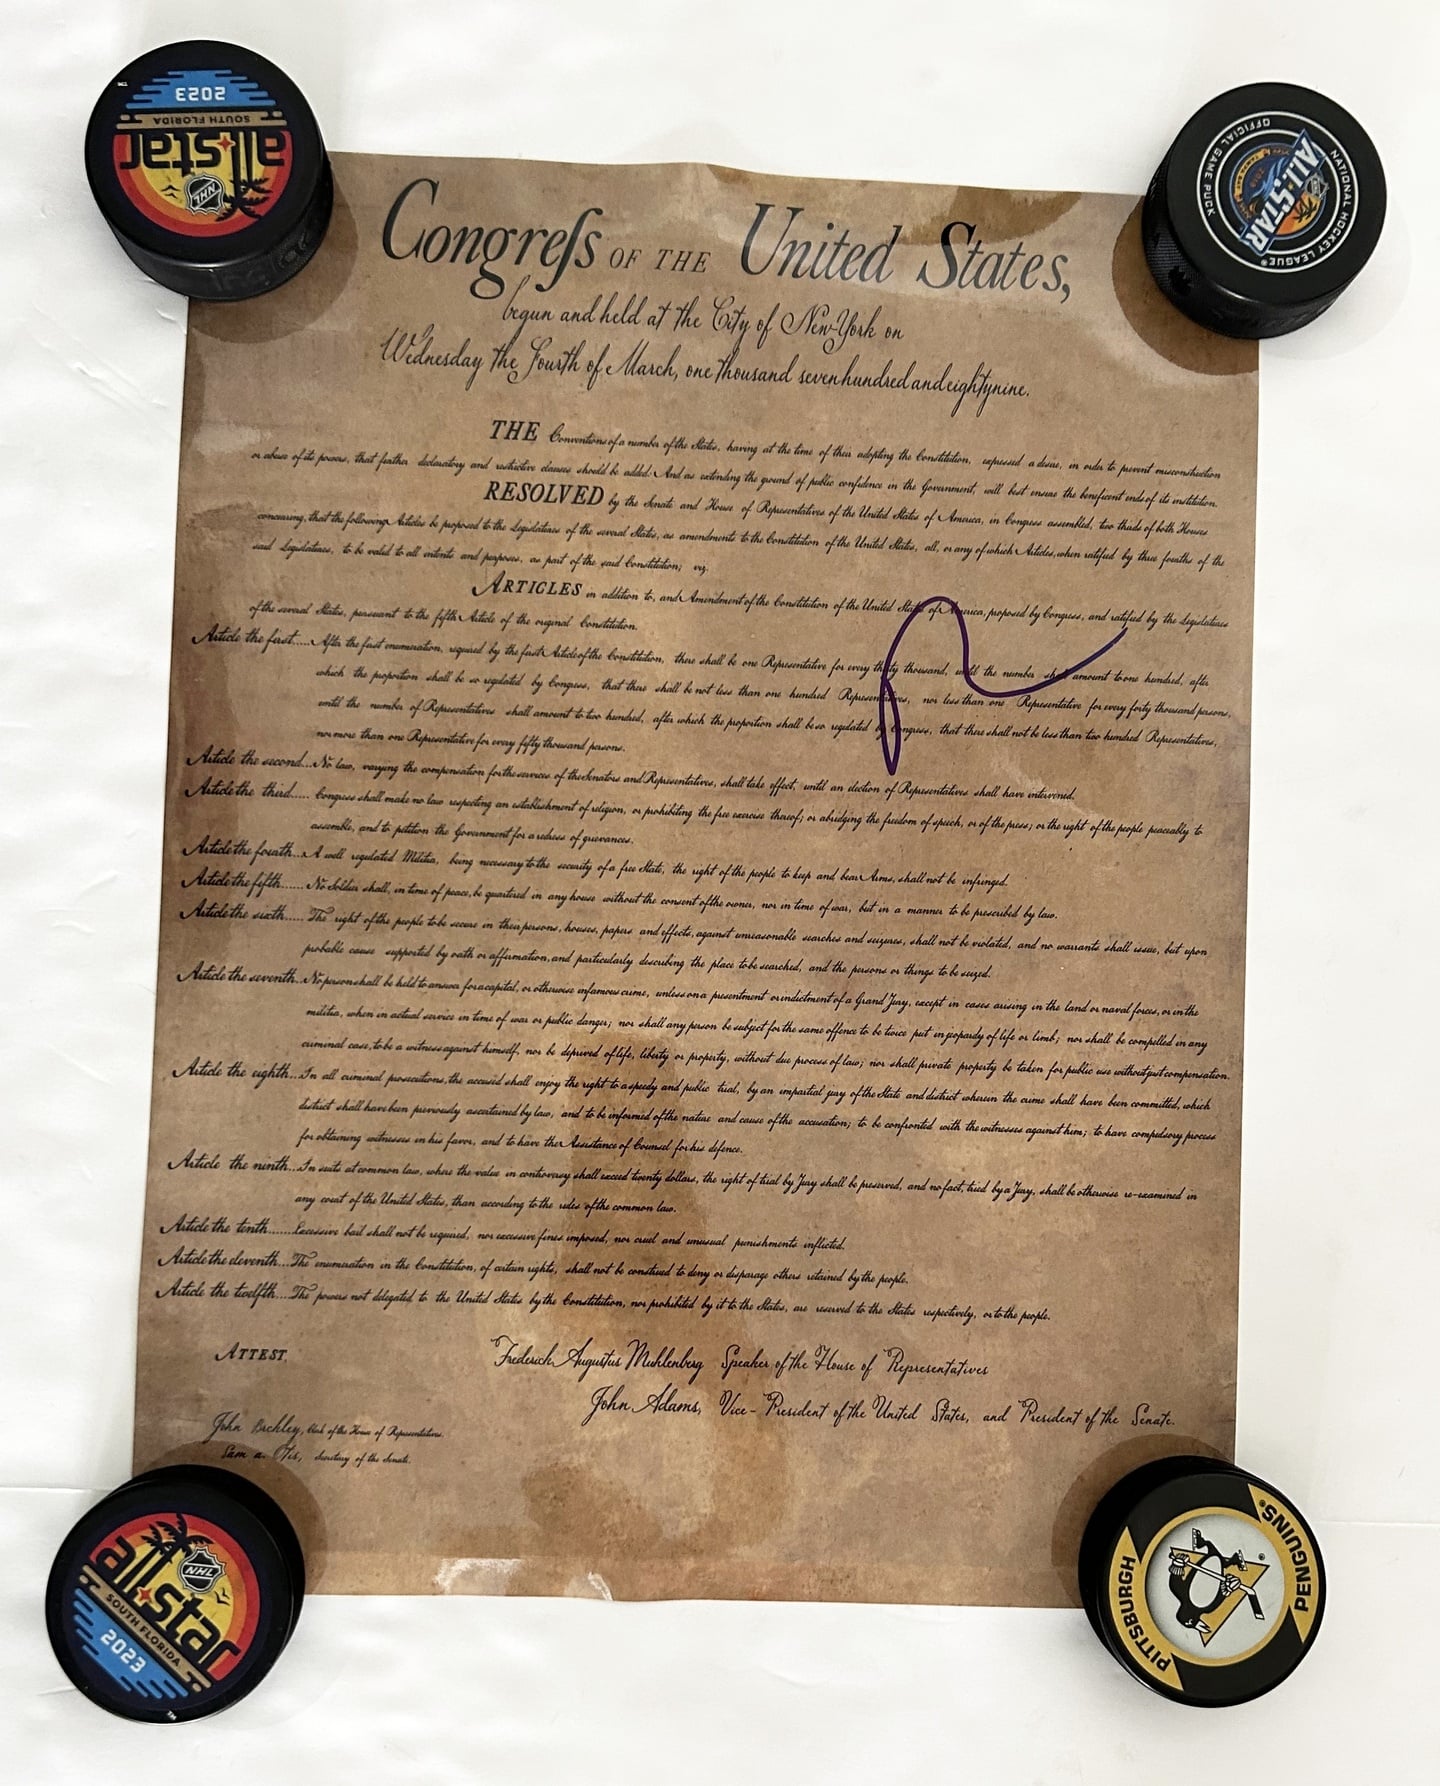 2023
SOUTH FLORIDA
all star
NHL
NATIONAL HOCKEY LEAGUE®
ALL STAR
OFFICIAL GAME PUCK
Congreſs OF THE United States,
begun and held at the City of New-York on
Wednesday the Fourth of March, one thousand seven hundred and eighty nine.
THE Conventions of a number of the States, having at the time of their adopting the Constitution, expressed a desire, in order to prevent misconstruction
or abuse of its powers, that further declaratory and restrictive clauses should be added: And as extending the ground of public confidence in the Government, will best ensure the beneficent ends of its institution.
RESOLVED by the Senate and House of Representatives of the United States of America, in Congress assembled, two thirds of both Houses
concurring, that the following Articles be proposed to the Legislatures of the several States, as amendments to the Constitution of the United States, all, or any of which Articles, when ratified by three fourths of the
said Legislatures, to be valid to all intents and purposes, as part of the said Constitution; viz.
ARTICLES in addition to, and Amendment of the Constitution of the United States of America, proposed by Congress, and ratified by the Legislatures
of the several States, pursuant to the fifth Article of the original Constitution.
Article the first..... After the first enumeration, required by the first Article of the Constitution, there shall be one Representative for every thirty thousand, until the number shall amount to one hundred, after
which the proportion shall be so regulated by Congress, that there shall be not less than one hundred Representatives, nor less than one Representative for every forty thousand persons,
until the number of Representatives shall amount to two hundred, after which the proportion shall be so regulated by Congress, that there shall not be less than two hundred Representatives,
nor more than one Representative for every fifty thousand persons.
Article the second... No law, varying the compensation for the services of the Senators and Representatives, shall take effect, until an election of Representatives shall have intervened.
Article the third..... Congress shall make no law respecting an establishment of religion, or prohibiting the free exercise thereof; or abridging the freedom of speech, or of the press; or the right of the people peaceably to
assemble, and to petition the Government for a redress of grievances.
Article the fourth... A well regulated Militia, being necessary to the security of a free State, the right of the people to keep and bear Arms, shall not be infringed.
Article the fifth...... No Soldier shall, in time of peace, be quartered in any house without the consent of the owner, nor in time of war, but in a manner to be prescribed by law.
Article the sixth..... The right of the people to be secure in their persons, houses, papers and effects, against unreasonable searches and seizures, shall not be violated, and no warrants shall issue, but upon
probable cause supported by oath or affirmation, and particularly describing the place to be searched, and the persons or things to be seized.
Article the seventh... No person shall be held to answer for a capital, or otherwise infamous crime, unless on a presentment or indictment of a Grand Jury, except in cases arising in the land or naval forces, or in the
militia, when in actual service in time of war or public danger; nor shall any person be subject for the same offence to be twice put in jeopardy of life or limb; nor shall be compelled in any
criminal case, to be a witness against himself, nor be deprived of life, liberty or property, without due process of law; nor shall private property be taken for public use without just compensation.
Article the eighth... In all criminal prosecutions, the accused shall enjoy the right to a speedy and public trial, by an impartial jury of the State and district wherein the crime shall have been committed, which
district shall have been previously ascertained by law, and to be informed of the nature and cause of the accusation; to be confronted with the witnesses against him; to have compulsory process
for obtaining witnesses in his favor, and to have the Assistance of Counsel for his defence.
Article the ninth... In suits at common law, where the value in controversy shall exceed twenty dollars, the right of trial by Jury shall be preserved, and no fact, tried by a Jury, shall be otherwise re-examined in
any court of the United States, than according to the rules of the common law.
Article the tenth...... Excessive bail shall not be required, nor excessive fines imposed, nor cruel and unusual punishments inflicted.
Article the eleventh... The enumeration in the Constitution, of certain rights, shall not be construed to deny or disparage others retained by the people.
Article the twelfth... The powers not delegated to the United States by the Constitution, nor prohibited by it to the States, are reserved to the States respectively, or to the people.
ATTEST,
Frederick Augustus Muhlenberg Speaker of the House of Representatives
John Adams, Vice-President of the United States, and President of the Senate.
John Beckley, Clerk of the House of Representatives.
Sam a. Otis, Secretary of the Senate.
all star
NHL
SOUTH FLORIDA
2023
TM
PITTSBURGH
PENGUINS®